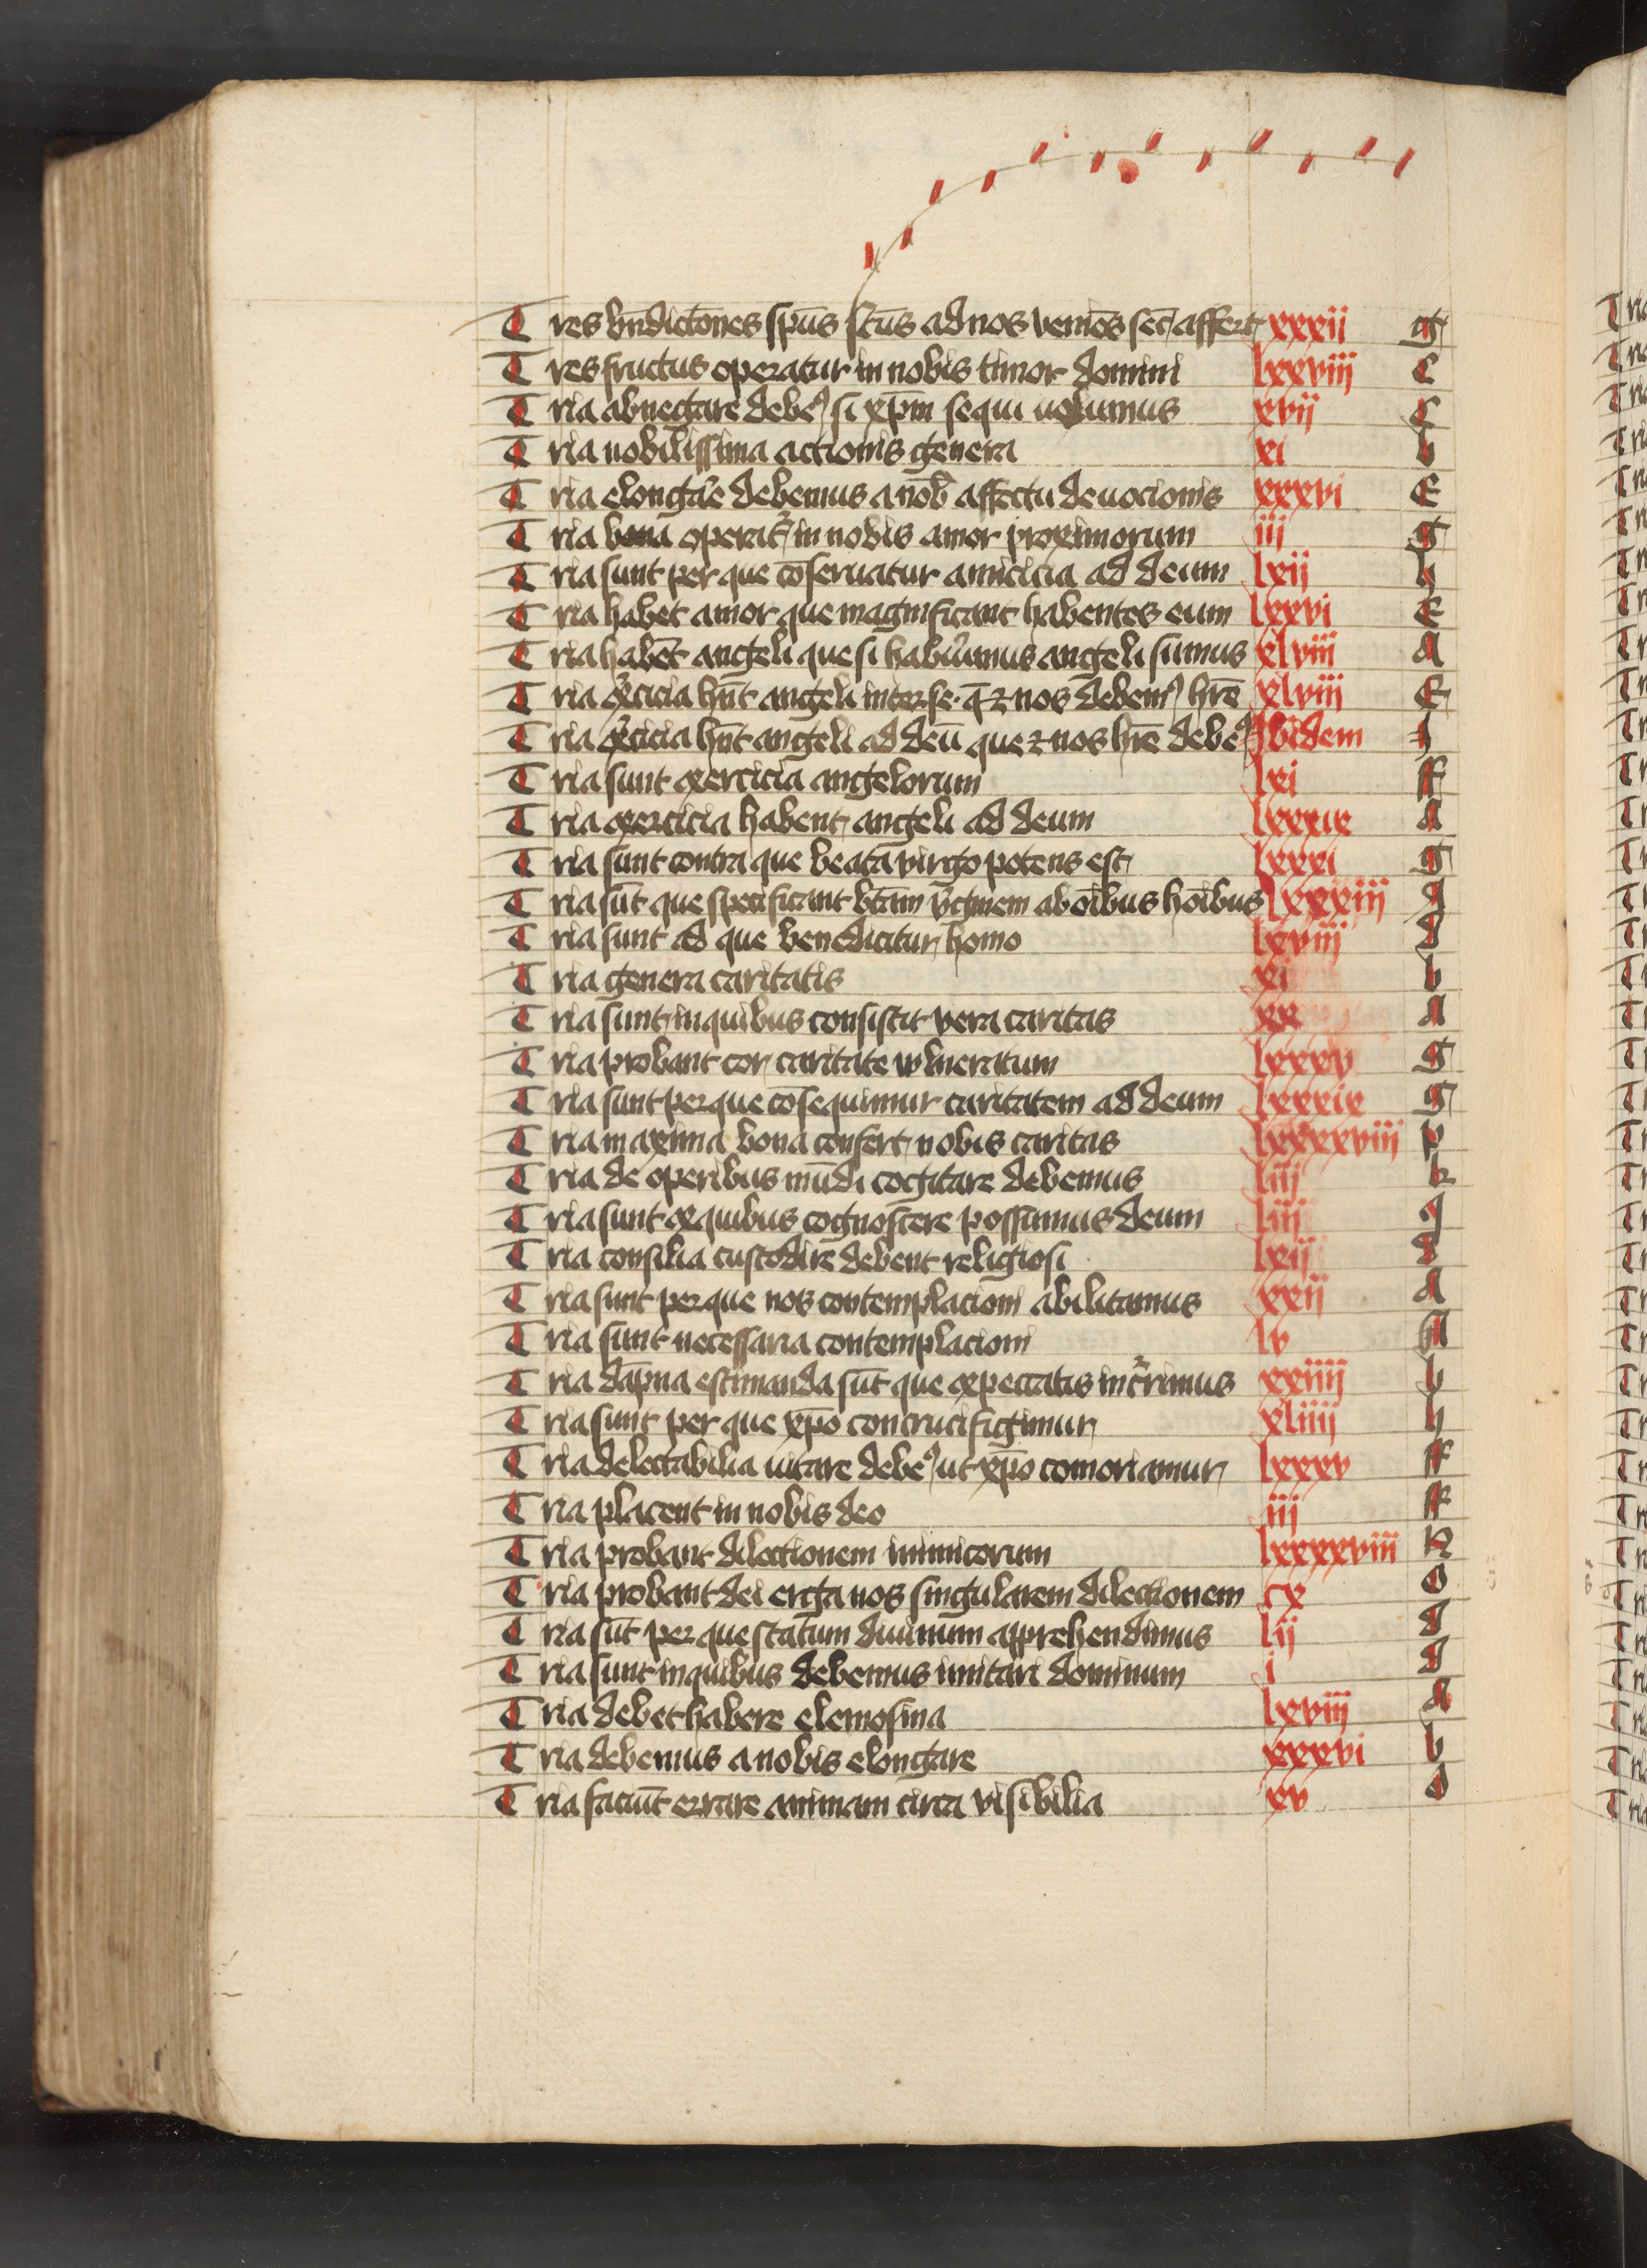 Tres bn̄dict̄ones sp̄us sc̄us ad nos veniēs secū affert xxxii g
Tres fructus operatur in nobis timor domini lxxviij C
Tria abnegare debeꝰ si xp̄m sequi uolumus xvij C
Tria nobilissima actionis genera xi b
Tria elongare debemus a nob̄ affectu deuocionis xxxvi E
Tria bona operat᷑ in nobis amor proximorum iij g
Tria sunt per que cōseruatur amicicia ad deum lxij h
Tria habet amor que magnificant habentes eum lxxvi E
Tria habēt angeli que si habuimus angeli sumus xlviii A
Tria exͤcicia hn̄t angeli inter se · q̄ ⁊ nos debemꝰ hr̄e xlviii E
Tria exͤcicia hn̄t angeli ad deū que ⁊ nos hr̄e debeꝰ Ibidem f
Tria sunt exercicia angelorum lxi ff
Tria exercicia habent angeli ad deum lxxxix A
Tria sunt contra que beata virgo potens est lxxxi g
Tria sūt que specificant bt̄am v̄ginem ab oībus hoībus lxxxiij g
Tria sunt ad que benedicitur homo lxviij d
Tria genera caritatis xi b
Tria sunt in quibus consistit vera caritas xx A
Tria probant cor caritate wlneratum lxxxv g
Tria sunt per que cōsequimur caritatem ad deum lxxxix g
Tria maxima bona confert nobis caritas lxxxxviij p
Tria de operibus mūdi cogitare debemus liij k
Tria sunt ex quibus cognoscere possumus deum liij g
Tria consilia custodire debent religiosi lxij d
Tria sunt per que nos contemplacioni abilitamus xxij A
Tria sunt necessaria contemplacioni lv A
Tria dāpna estimanda sūt que ex peccatis incͬrimus xxiiij b
Tria sunt per que xp̄o concrucifigimur xliiij h
Tria delectabilia uitare debeꝰ ut xp̄o comoriamur lxxxv ff
Tria placent in nobis deo iij ff
Tria probant dilectionem inimicorum lxxxxviij N
Tria probant dei erga nos singularem dilectionem cx O
Tria sūt per que statum diuinum apprehendimus lij d
Tria sunt in quibus debemus imitari dominum i d
Tria debet habere elemosina lxviij A
Tria debemus a nobis elongare xxxvi b
Tria faciūt errare animam circa visibilia xv d